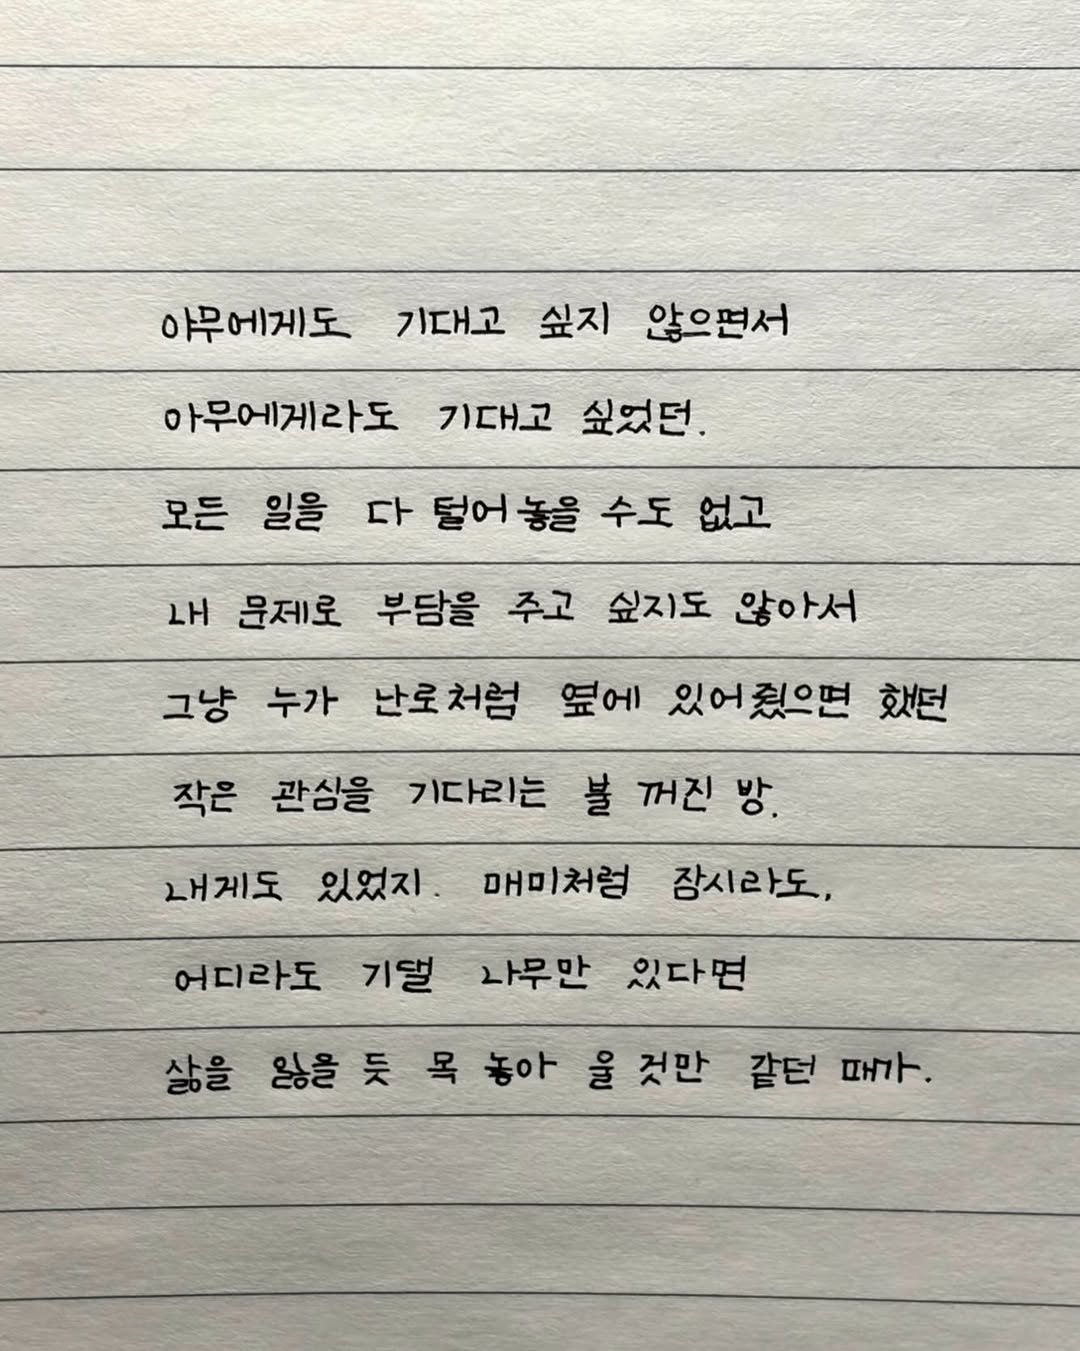 아무에게도 기대고 싶지 않으면서
아무에게라도 기대고 싶었던.
모든 일을 다 털어놓을 수도 없고
내 문제로 부담을 주고 싶지도 않아서
그냥 누가 난로처럼 옆에 있어줬으면 했던
작은 관심을 기다리는 불 꺼진 방.
내게도 있었지. 매미처럼 잠시라도,
어디라도 기댈 나무만 있다면
삶을 잃을 듯 목 놓아 울 것만 같던 때가.